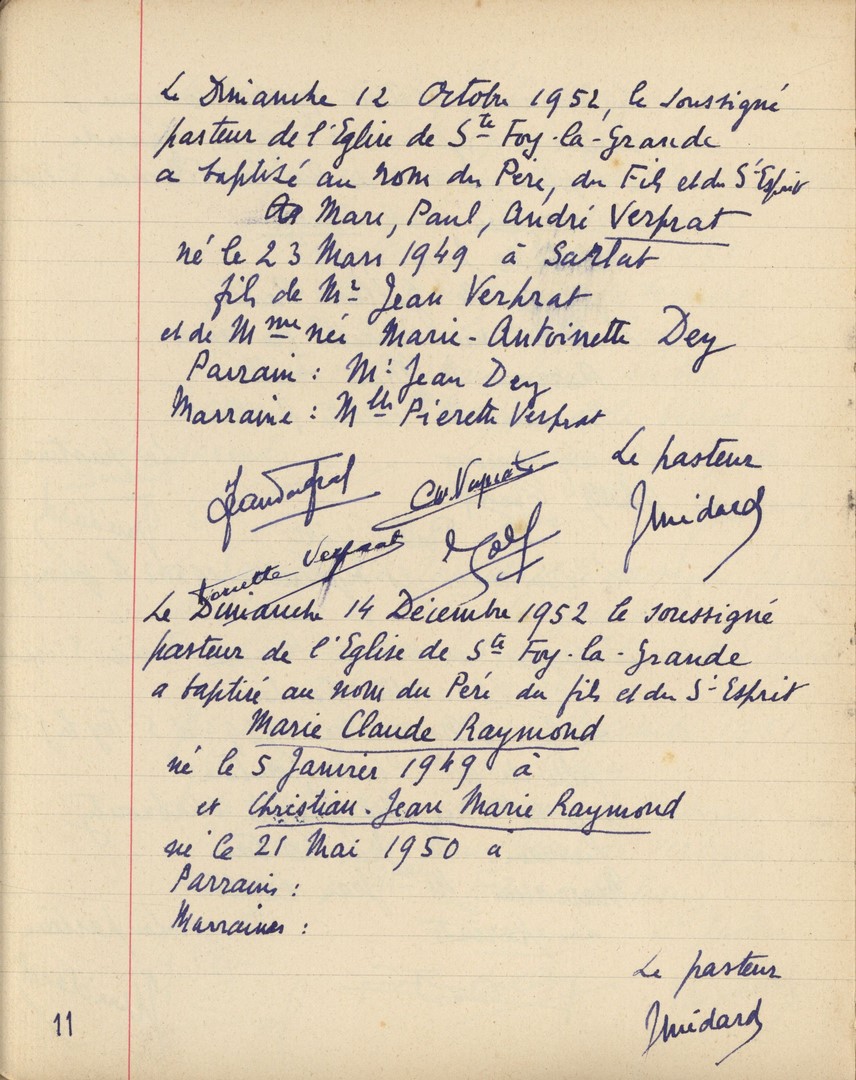 Le Dimanche 12 Octobre 1952, le soussigné
pasteur de l'Eglise de Ste Foy-la-Grande
a baptisé au nom du Père, du Fils et du St Esprit
Marc, Paul, André Verprat
né le 23 Mars 1949 à Sarlat
fils de Mr Jean Verprat
et de Mme née Marie-Antoinette Dey
Parrain : Mr Jean Dey
Marraine : Mlle Pierette Verprat
Le pasteur
Verprat
Le Dimanche 14 Décembre 1952 le soussigné
pasteur de l'Eglise de Ste Foy-la-Grande
a baptisé au nom du Père du fils et du St Esprit
Marie Claude Raymond
né le 5 Janvier 1949 à
et Christian-Jean Marie Raymond
né le 21 Mai 1950 à
Parrains :
Marraines :
Le pasteur
11